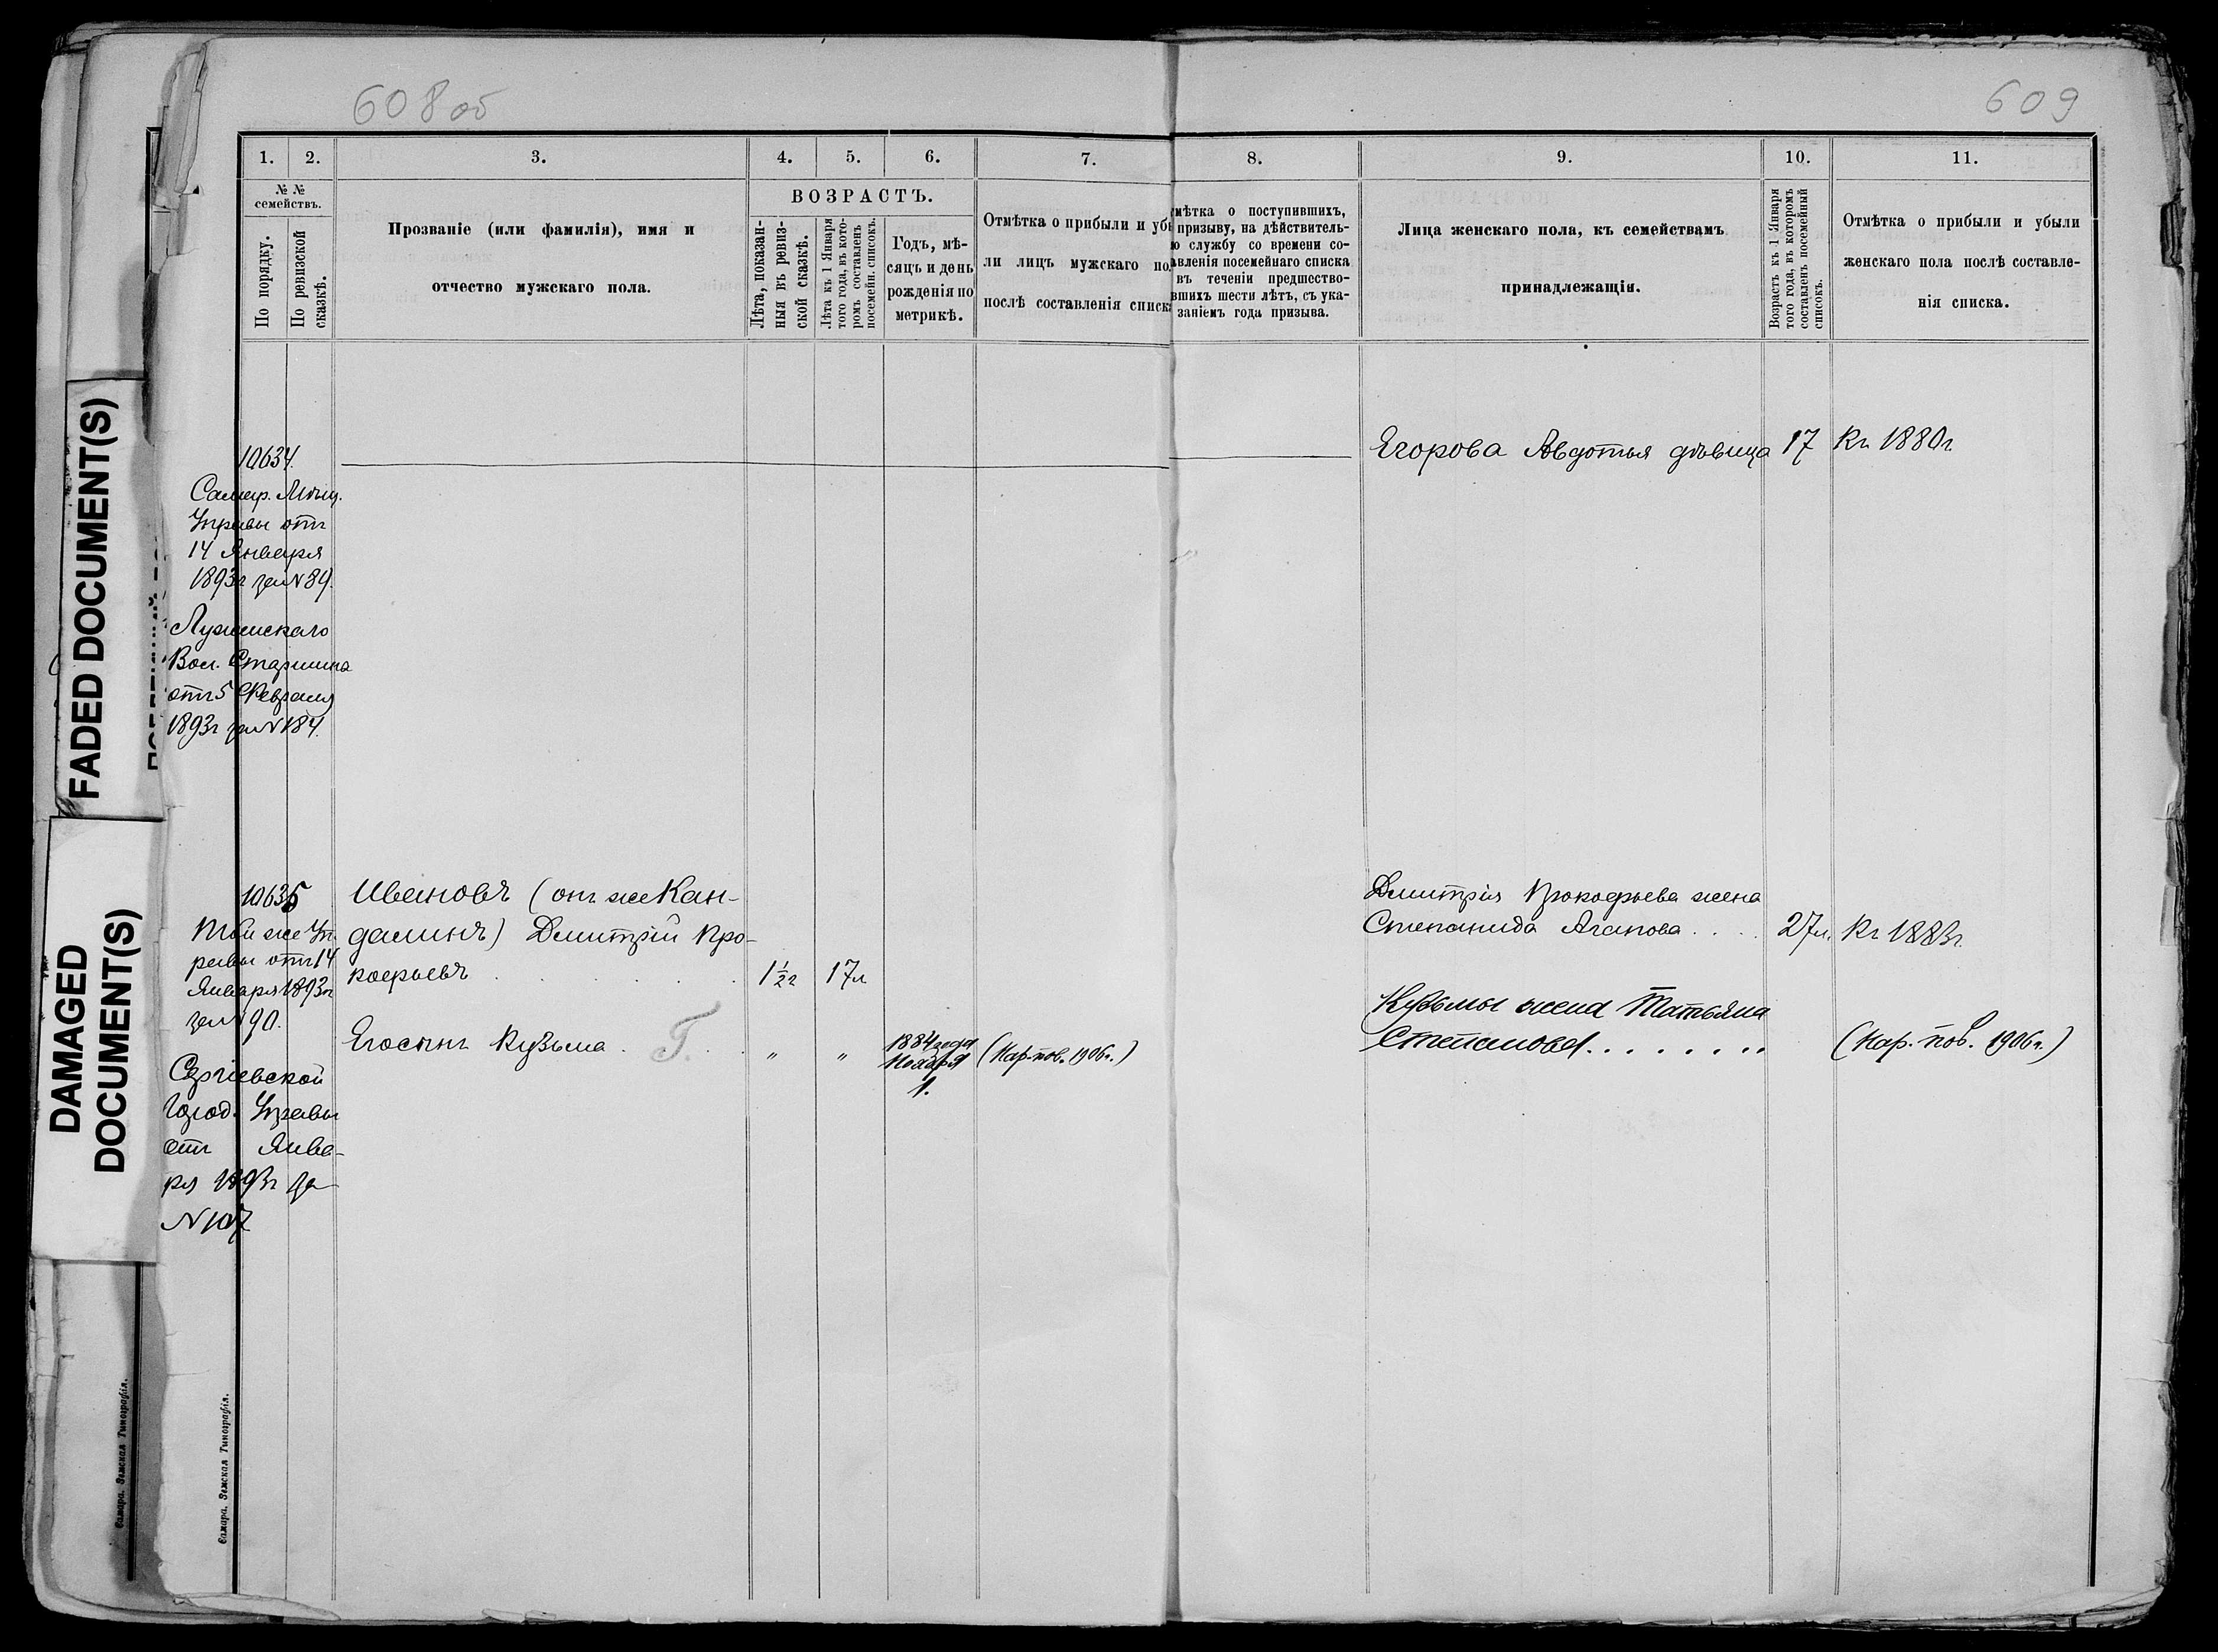 608 об
609
1.
2.
3.
4.
5.
6.
7.
8.
9.
10.
11.
№ №
семействъ.
По порядку.
По ревизской
сказкѣ.
Прозваніе (или фамилія), имя и
отчество мужскаго пола.
ВОЗРАСТЪ.
Лѣта, показан-
ныя въ ревиз-
ской сказкѣ.
Лѣта къ 1 Января
того года, въ кото-
ромъ составленъ
посемейн. списокъ.
Годъ, мѣ-
сяцъ и день
рожденія по
метрикѣ.
Отмѣтка о прибыли и убы
ли лицъ мужскаго пол
послѣ составленія списк
мѣтка о поступившихъ,
призыву, на дѣйствитель-
ю службу со времени со-
авленія посемейнаго списка
въ теченіи предшество-
вшихъ шести лѣтъ, съ ука-
заніемъ года призыва.
Лица женскаго пола, къ семействамъ
принадлежащія.
Возрастъ къ 1 Января
того года, въ которомъ
составленъ посемейный
списокъ.
Отмѣтка о прибыли и убыли
женскаго пола послѣ составле-
нія списка.
10634.
Самар. Мѣщ.
Управы отъ
14 Января
1893г за N 89.
Вол. Старшина
отъ 5 Февраля
1893г за N 184.
Егорова Авдотья дѣвица
17
Къ 1880г.
10635
Той же Уп-
равы отъ 14
Января 1893г
за N 90.
Сергіевской
Город. Управы
отъ Янва-
ря 1893г за
N 107
Ивановъ (онъ же Кан-
далинъ) Дмитрій Про-
кофьевъ
1½г
17л
Егосынъ Кузьма
Г.
"
"
1884 года
Ноября
1.
(Кар. пов. 1906г.)
Дмитрія Прокофьева жена
Степанида Агапова
27л.
Къ 1883г.
Кузьмы жена Татьяна
Степанова
(Кар. пов. 1906г.)
FADED DOCUMENT(S)
DAMAGED
DOCUMENT(S)
Самара. Земская Типографія.
Самара. Земская Типографія.